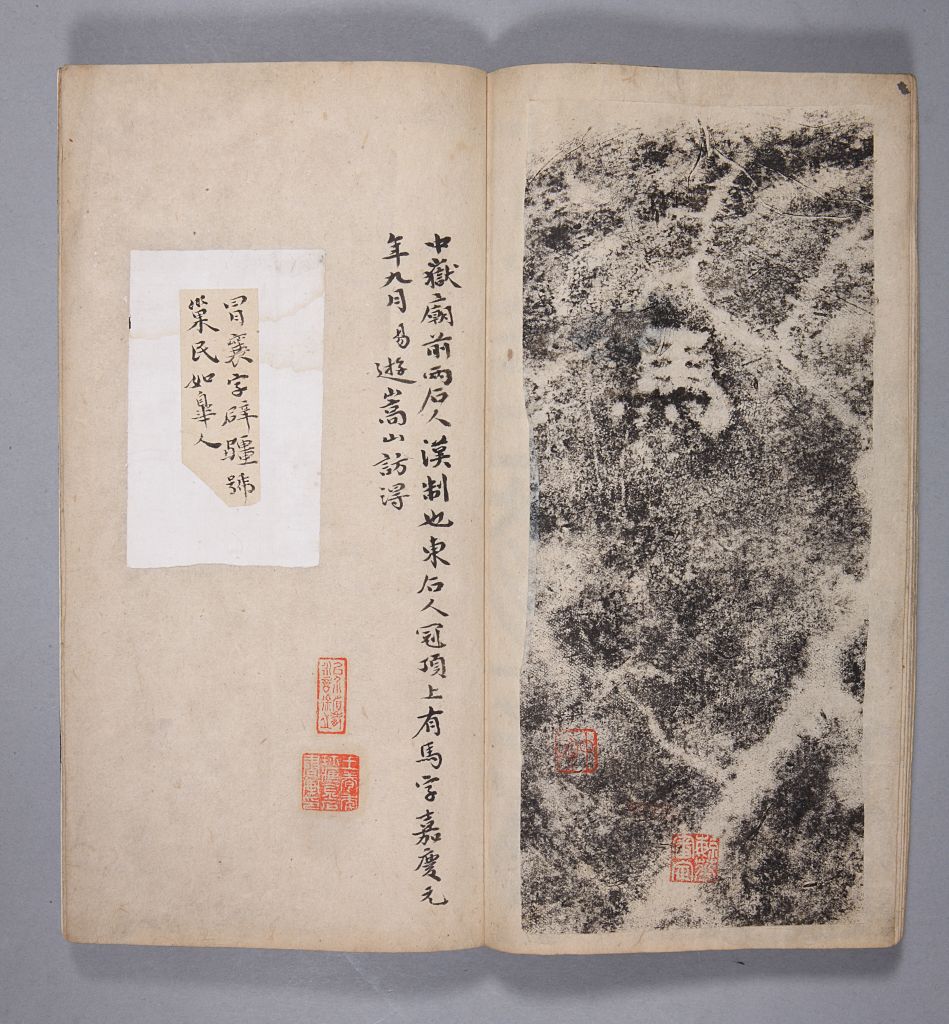 馬
中嶽廟前兩石人漢制也東石人冠頂上有馬字嘉慶元
年九月易遊嵩山訪得
冐襄字辟疆號
巢民如臯人